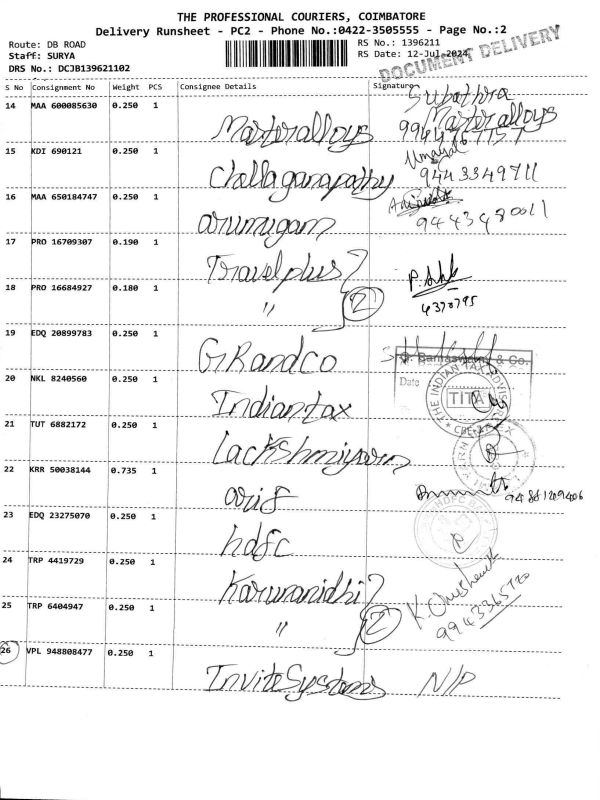 THE PROFESSIONAL COURIERS, COIMBATORE
Delivery Runsheet - PC2 - Phone No.:0422-3505555 - Page No.:2
Route: DB ROAD
RS No.: 1396211
Staff: SURYA
RS Date: 12-Jul-2024
DRS No.: DCJB139621102
DOCUMENT DELIVERY
S No Consignment No Weight PCS Consignee Details Signature
14 MAA 600085630 0.250 1 Masteralloys Subathra
Master alloys
15 KDI 690121 0.250 1 Challaganapathy
9443349711
16 MAA 650184747 0.250 1 arumugam
9443480011
17 PRO 16709307 0.190 1 Travelplus
18 PRO 16684927 0.180 1 " 2
4370795
19 EDQ 20899783 0.250 1 GRandCo
& Co.
Date
20 NKL 8240560 0.250 1 Indiantax
THE INDIAN TAX
TITA
21 TUT 6882172 0.250 1
22 KRR 50038144 0.735 1 arif
23 EDQ 23275070 0.250 1 hdfc
24 TRP 4419729 0.250 1 Karunanidhi
25 TRP 6404947 0.250 1 " 2
26 VPL 948808477 0.250 1 InviteSystems N/P